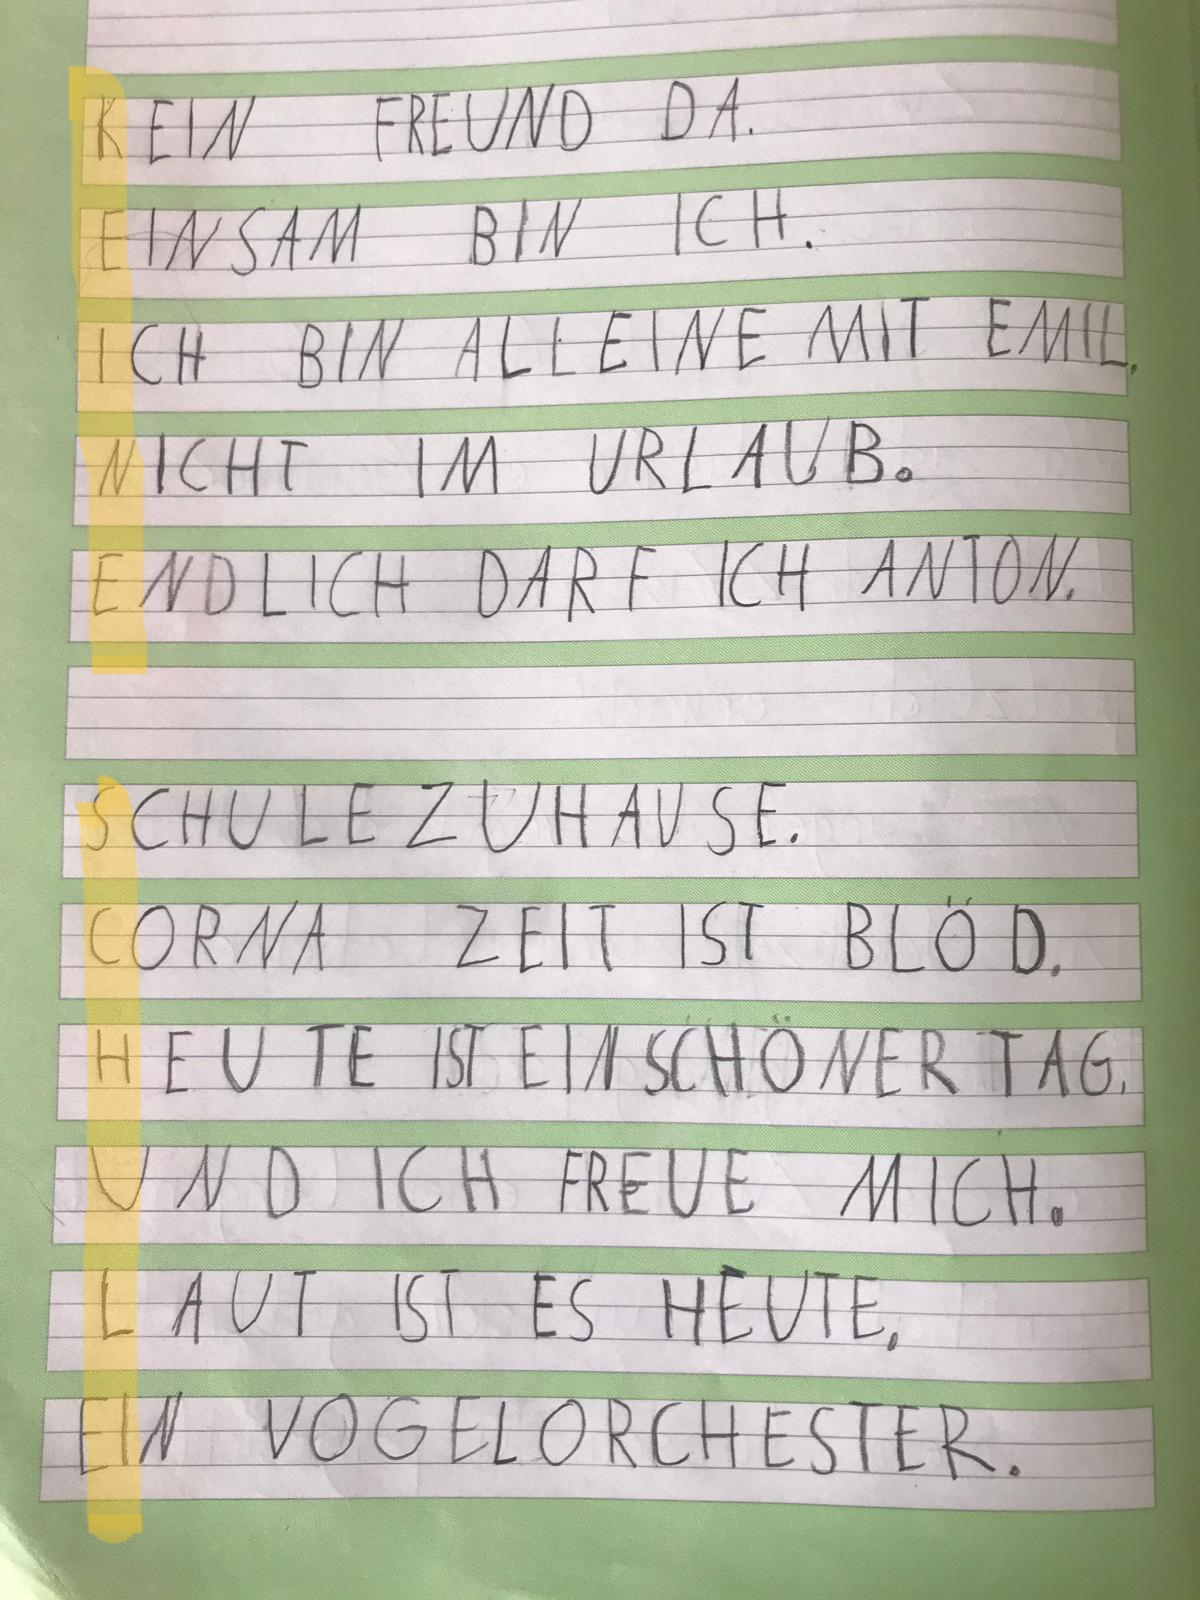 KEIN FREUND DA.
EINSAM BIN ICH.
ICH BIN ALLEINE MIT EMIL.
NICHT IM URLAUB.
ENDLICH DARF ICH ANTON.
SCHULE ZUHAUSE.
CORNA ZEIT IST BLÖD.
HEUTE IST EIN SCHÖNER TAG.
UND ICH FREUE MICH.
LAUT IST ES HEUTE,
EIN VOGELORCHESTER.